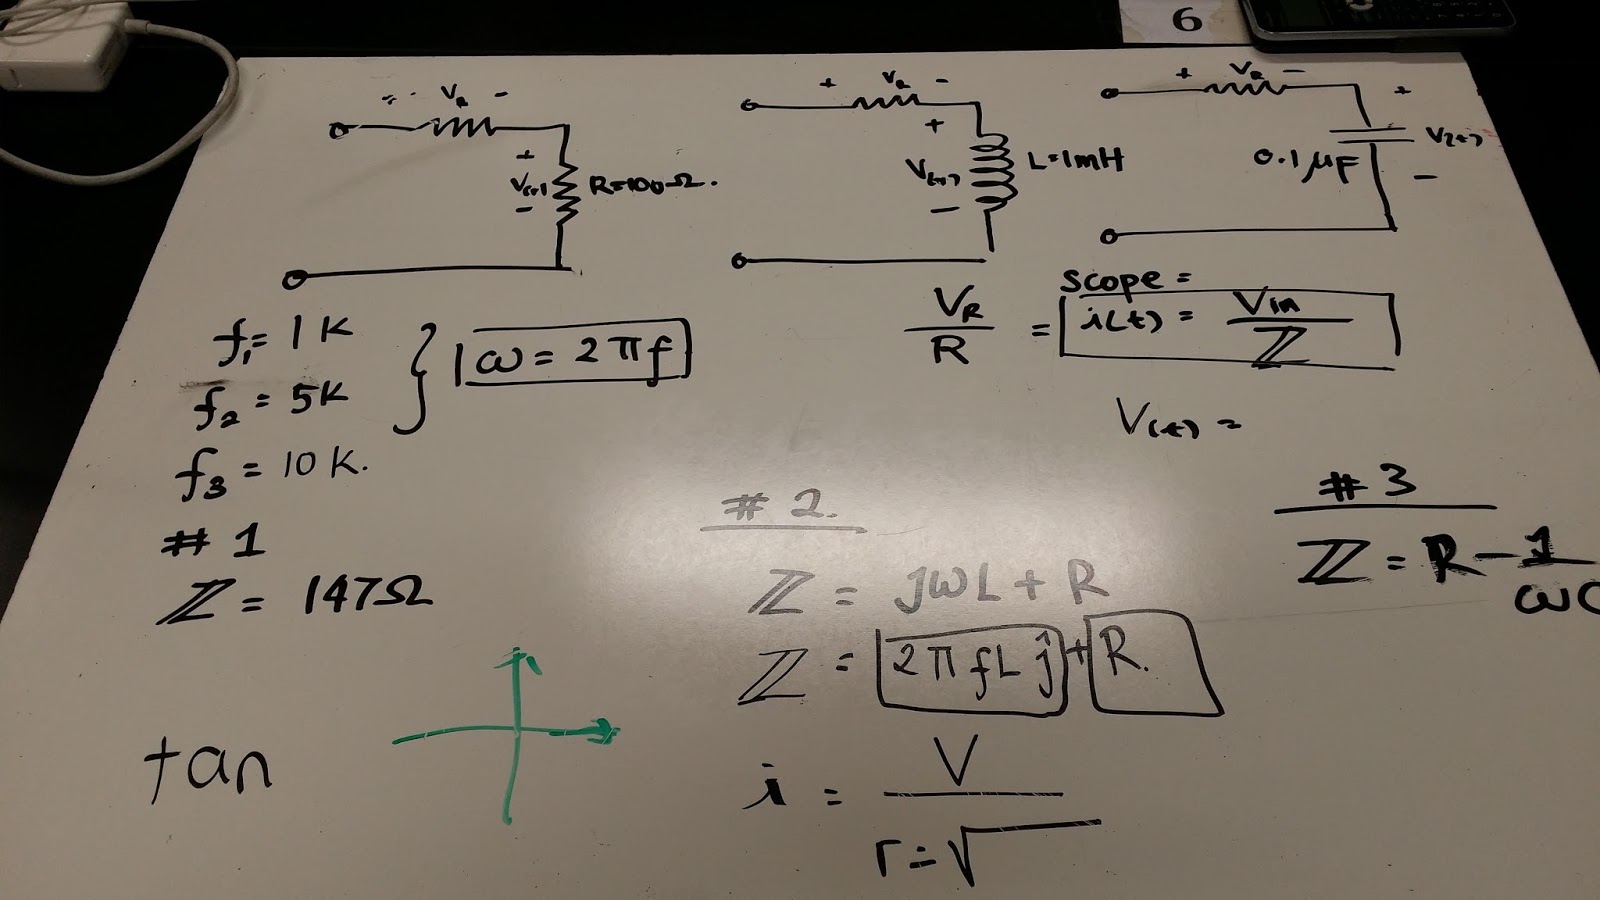 6
+ V_R -
+
V(t) R=100Ω.
-
+ V_R -
+
V(t) L=1mH
-
+ V_R -
+
0.1μF V(t)
-
f₁= 1K
f₂ = 5K
f₃ = 10K.
ω = 2πf
V_R / R =
scope =
i(t) = Vin / Z
V(t) =
#1
Z = 147Ω
tan
#2.
Z = jωL + R
Z = 2πfLj + R.
i = V
r=√
#3
Z = R - 1/ωC